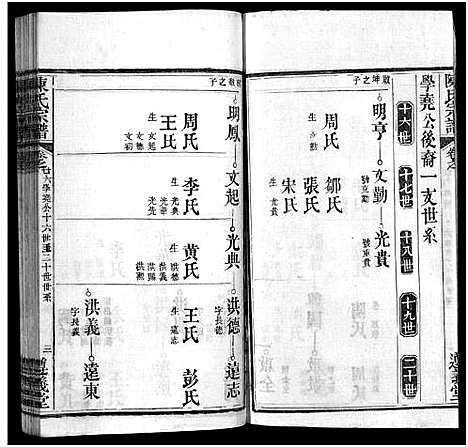 陳氏宗譜
卷之
學堯公後裔一支世系
十六世
十七世
十八世
十九世
二十世
之子
明亨
文勤
光貴
號重貴
周氏
鄒氏
張氏
宋氏
生
之子
明鳳
文起
光典
洪德
遠志
周氏
王氏
生
文起
文德
文初
李氏
生
光典
光先
黄氏
生
洪德
洪義
王氏
生
遠志
彭氏
洪義
字長義
遠東
陳氏宗譜
卷之七
六學堯公十六世至二十世世系
三
義堂